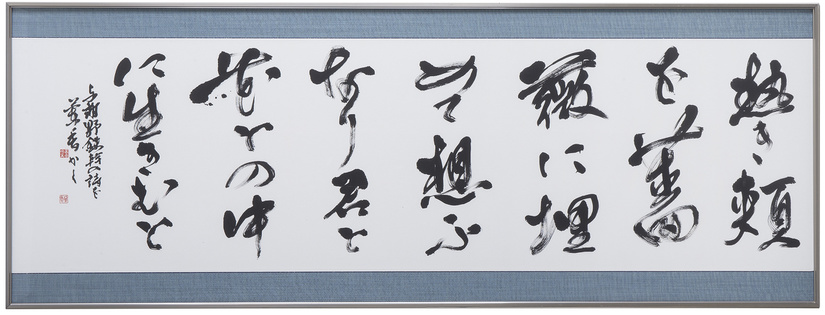 熱き頬
を薔
薇に埋
めて想ふ
なり君と
花との中
に生きむと
与謝野鉄幹
かく